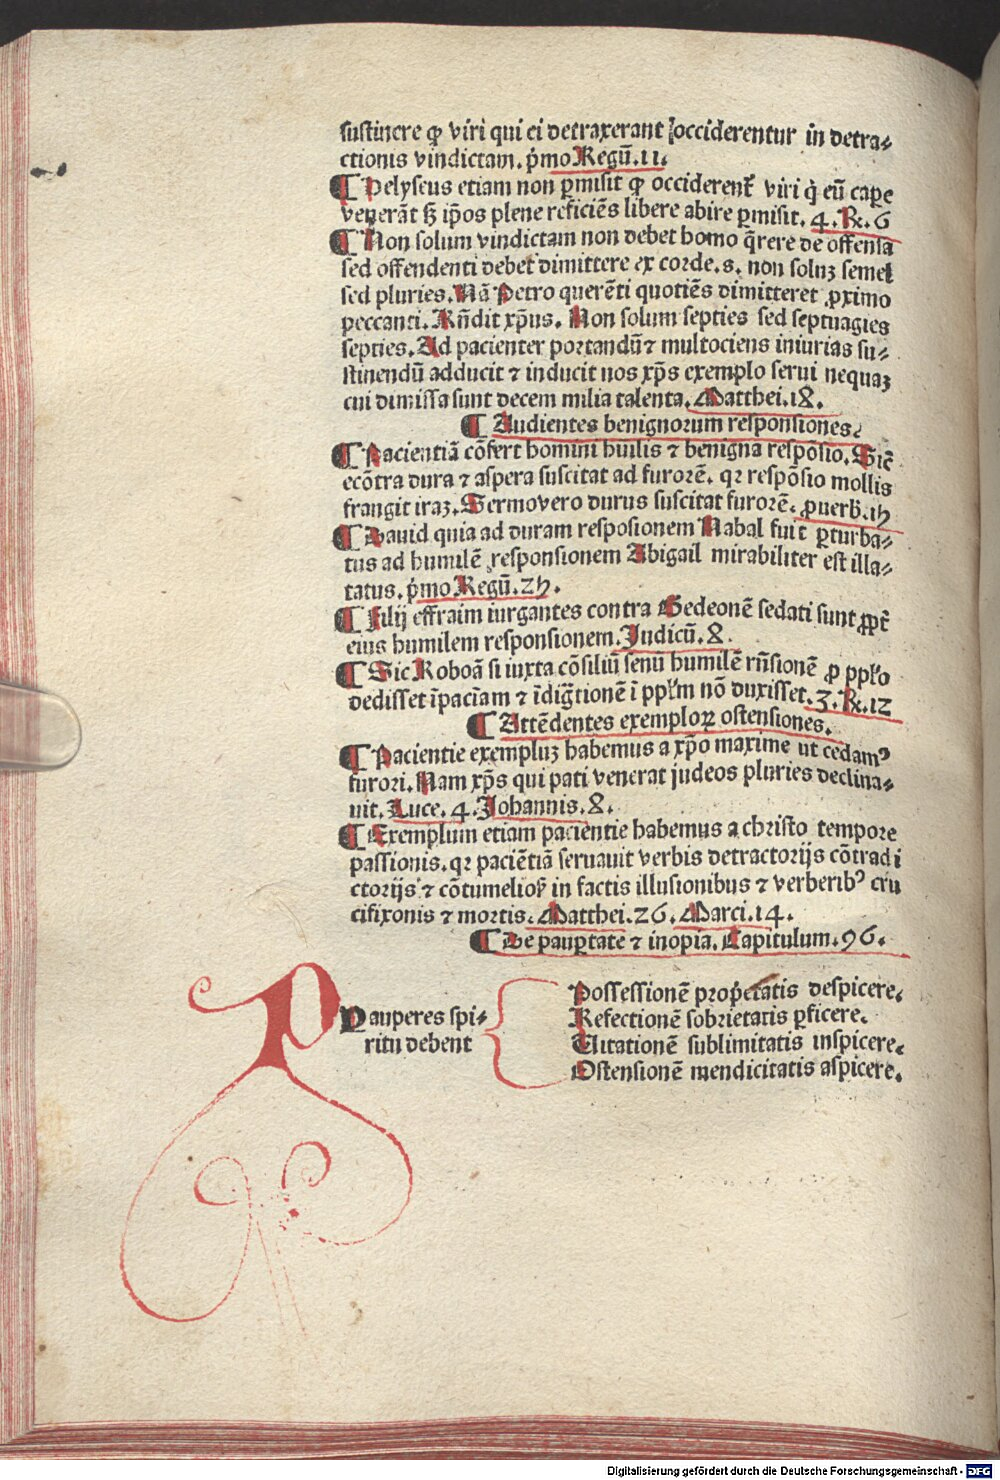 sustinere ꝙ viri qui ei detraxerant occiderentur in detra⸗
ctionis vindictam. p̄mo Regū. 11.
¶ Helyseus etiam non ꝑmisit ꝙ occiderent᷑ viri q̇ eū caꝑe
venerāt sꝫ ip̄os plene reficiēs libere abire ꝑmisit. 4. R̄. 6
¶ Non solum vindictam non debet homo q̄rere de offensa
sed offendenti debet dimittere ex corde. s. non soluꝫ semel
sed pluries. Nā Petro querēti quotiēs dimitteret ꝓximo
peccanti. Rn̄dit xp̄us. Non solum septies sed septuagies
septies. Ad pacienter portandū ⁊ multociens iniurias su⸗
stinendū adducit ⁊ inducit nos xp̄s exemplo serui nequaꝫ
cui dimissa sunt decem milia talenta. Matthei. 18.
¶ Audientes benignorum responsiones.
¶ Pacientiā cōfert homini hūilis ⁊ benigna respōsio. Sic̄
ecōtra dura ⁊ aspera suscitat ad furorē. qꝛ respōsio mollis
frangit iraꝫ. Sermo vero durus suscitat furorē. ꝓuerb̄. 15
¶ Dauid quia ad duram resposionem Nabal fuit ꝑturba⸗
tus ad humilē responsionem Abigail mirabiliter est illa⸗
tatus. p̄mo Regū. 25.
¶ Filij effraim iurgantes contra Gedeonē sedati sunt ꝓpt̄
eius humilem responsionem. Judicū. 8.
¶ Sic Roboā si iuxta cōsiliū senū humilē rn̄sionē ꝓ ppl̄o
dedisset īpaciam ⁊ īdiḡtionē ī ppl̄m nō duxisset. 3. R̄. 12
¶ Attēdentes exemploꝝ ostensiones.
¶ Pacientie exempluꝫ habemus a xp̄o maxime ut cedamꝰ
furori. Nam xp̄s qui pati venerat judeos pluries declina⸗
uit. Luce. 4. Johannis. 8.
¶ Exemplum etiam pacientie habemus a christo tempore
passionis. qꝛ paciētiā seruauit verbis detractorijs cōtradi
ctorijs ⁊ cōtumelioẜ in factis illusionibus ⁊ verberibꝰ cru
cifixonis ⁊ mortis. Matthei. 26. Marci. 14.
¶ De pauꝑtate ⁊ inopia. Capitulum. 96.
Pauperes spi⸗
ritu debent
Possessionē prop̄etatis despicere.
Refectionē sobrietatis ꝑficere.
Uitationē sublimitatis inspicere.
Ostensionē mendicitatis aspicere.
Digitalisierung gefördert durch die Deutsche Forschungsgemeinschaft - DFG